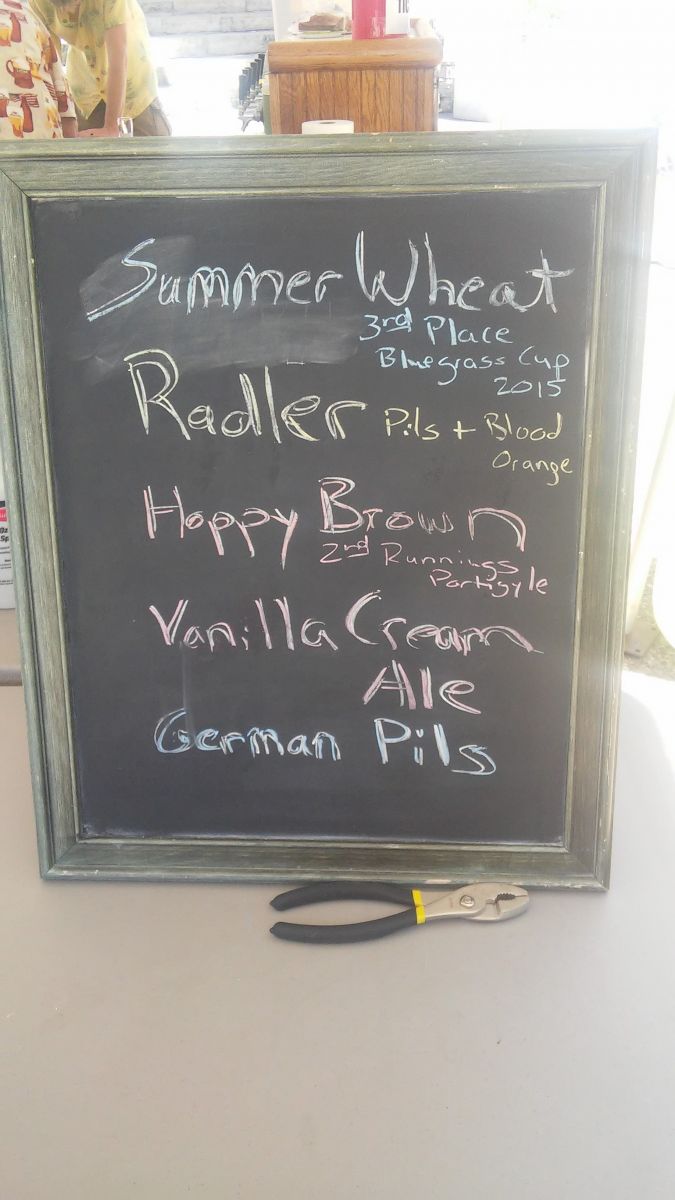 Summer Wheat
3rd Place
Bluegrass Cup
2015
Radler Pils + Blood
Orange
Hoppy Brown
2nd Runnings
Partigyle
Vanilla Cream
Ale
German Pils